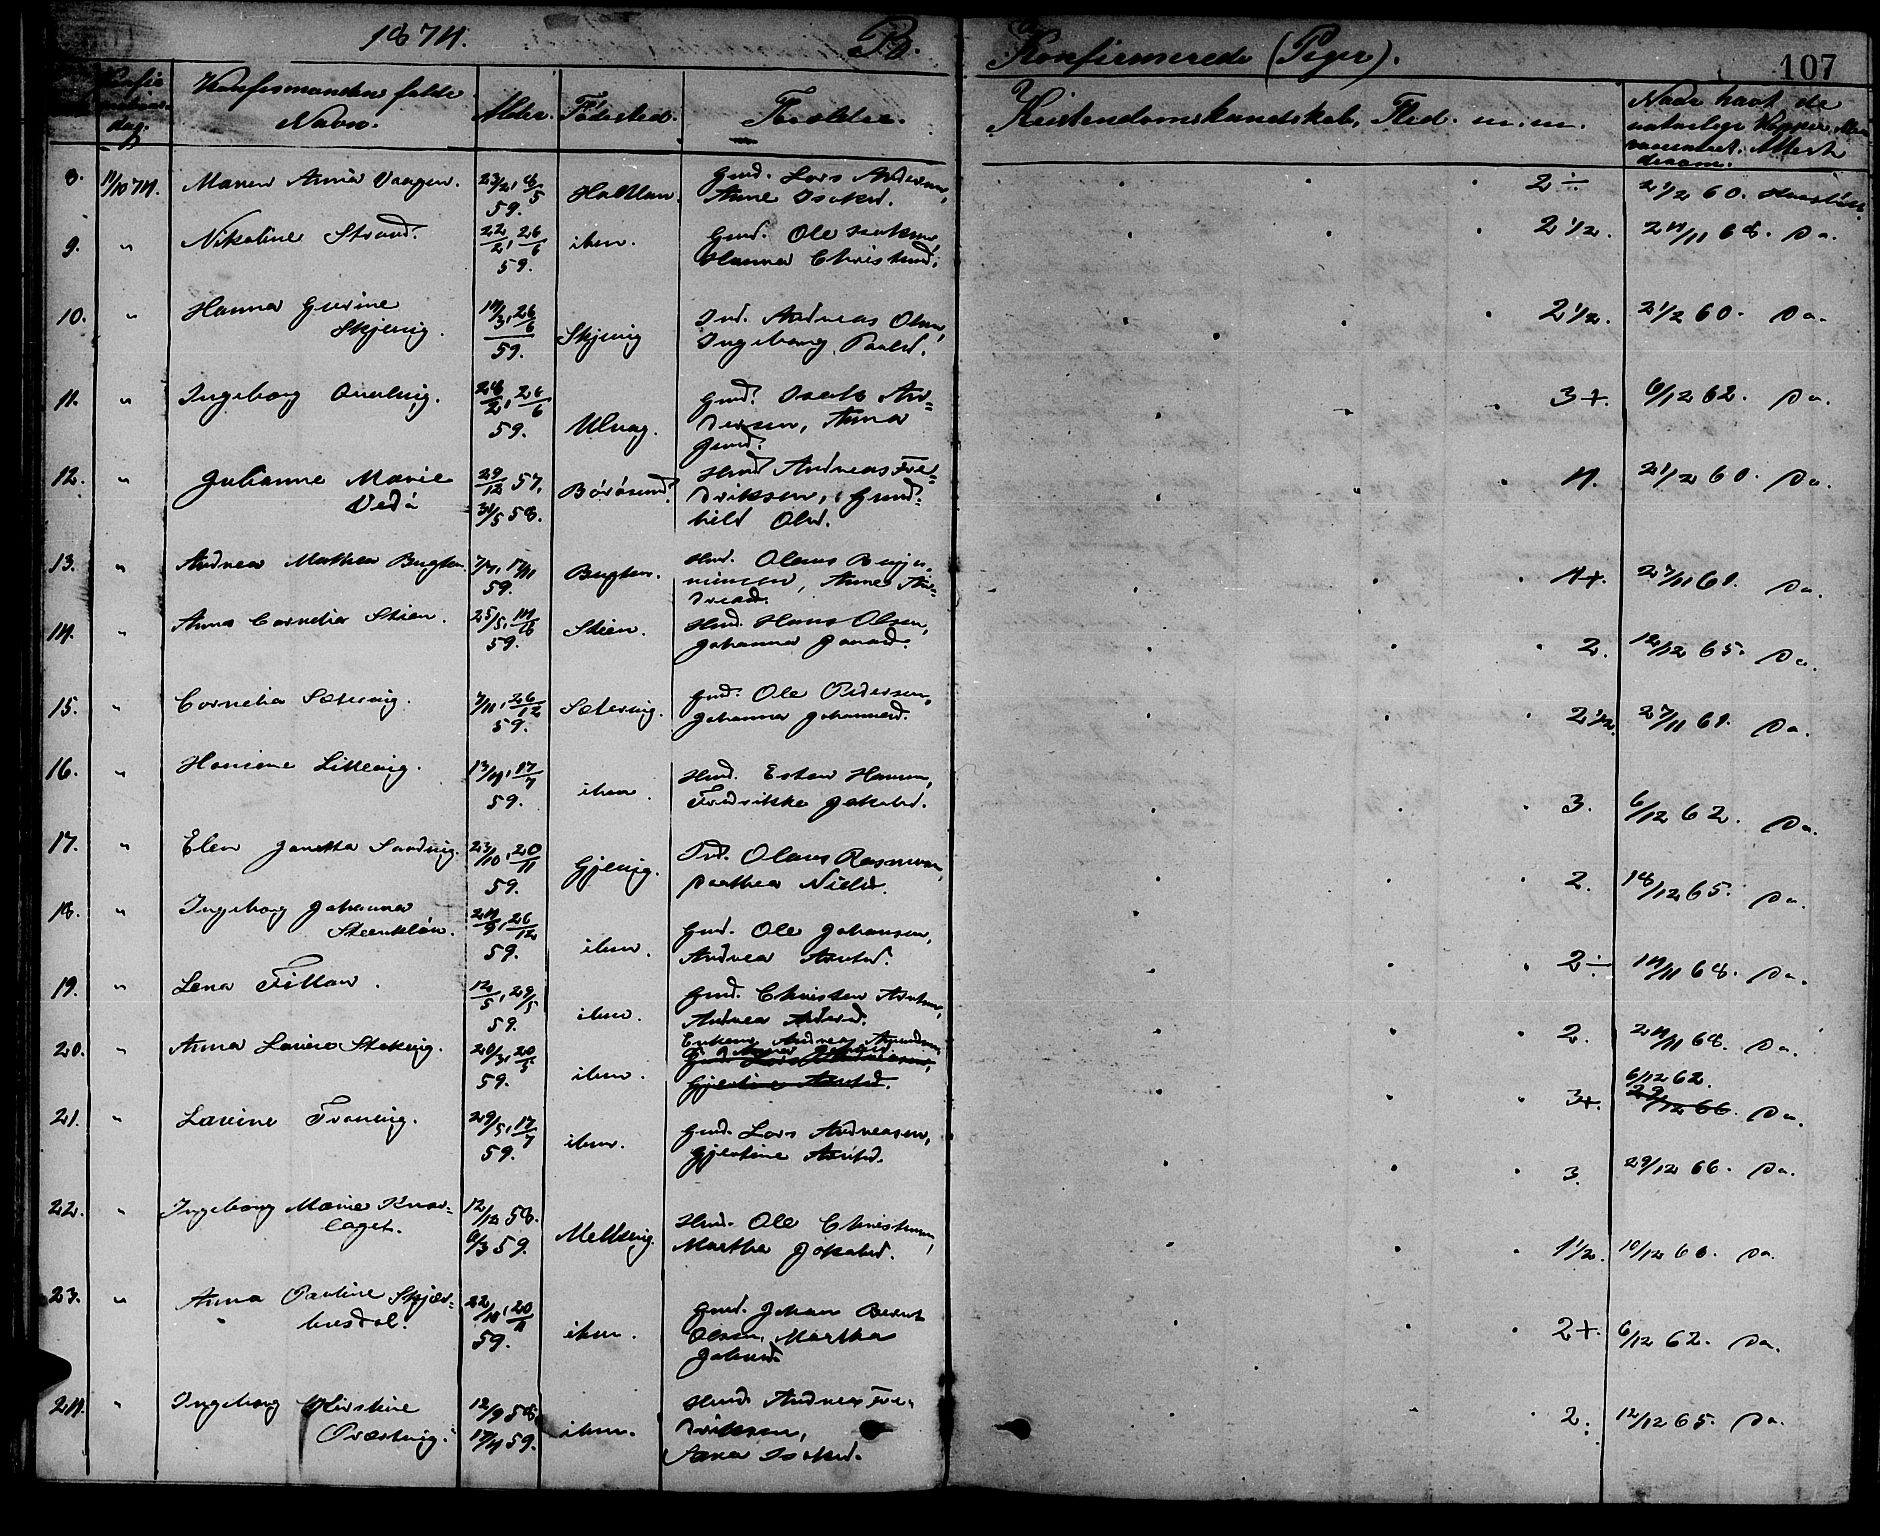 1874.
B.
Konfirmerede (Piger).
107
Konfirmandens fulde
Navn.
Alder.
Fødested.
Forældre.
Kristendomskundskab, Flid. m.m.
Naar havt de
naturlige Kopper eller
vaccineret. Attest
derom.
8. 11/10 74. Maren Anna Vaagen. 59. Gmd. Lars Andersen, 2÷ 21/2 60.
Anne Isaksd.
9. " Nikoline Strand. 22/2, 26/6 59. ibm. Gmd. Ole Isaksen, 2 1/2. 24/11 68. Do.
Hanna Christensd.
10. " Hanna Gurine 14/3, 26/6 59. Skjervig Ind. Andreas Olsen, 2 1/2. 21/2 60. Do.
Skjervig. Ingeborg Paulsd.
11. " Ingeborg 28/2, 26/6 59. Ulvag. Gmd. Isak An= 3+. 6/12 62. Do.
dersen, Anna
12. " Julianne Marie 29/12 57. Børøsund. Hmd Andreas Fre= 4. 21/2 60. Do.
Vedø 31/5 58. driksen, Gund=
hild Olsd.
13. " Andrea Mathea Bugten. 59. Bugten. Hmd. Olaus Benja= 4+. 27/11 61. Do.
minsen, Anne An=
dreasd.
14. " Anna Cornelia Stien. 25/5, 59. Stien. Hmd. Hans Olsen, 2. 12/12 65. Do.
Johanna
15. " Cornelia Sætervig. 7/11, 26/12 59. Sætervig. Gmd. Ole Pedersen, 2 1/2. 27/11 61. Do.
Johanna Johannesd.
16. " Hansine Littevig. 13/4, 17/7 59. ibm. Hmd. Esten Hansen, 3. 6/12 62. Do.
Fredrikke Jakobsd.
17. " Elen Janetta Sandvig. 23/10, 20/11 59. Gjevig. Olaus Rasmussen, 2. 18/12 65. Do.
Dorthea Nielsd.
18. " Ingeborg Johanna 26/12 59. ibm. Gmd. Ole Johansen, 2÷ 14/11 68. Do.
Steenkløv. Andrea Arntsd.
19. " Lena Fillan. 12/5, 29/5 59. ibm. Gmd. Christen Arntsen, 2. 24/11 68. Do.
Andrea
20. " Anna Lovise Stokvig. 20/3, 20/5 59. ibm. Enkem. Andreas 3+. 6/12 62.
Gmd. Lars Andreasen, 29/12 66. Do.
Gjertine Arntsd.
21. " Lavine Tranvig. 29/5, 17/7 59. ibm. Gmd. Lars Andreasen, 3. 29/12 66. Do.
Gjertine Arntsd.
22. " Ingeborg Marie Knar= 12/12 58. Melkvig. Hmd. Ole Christensen, 1 1/2. 10/12 60. Do.
laget. 6/3 59. Martha Jakobsd.
23. " Anna Pauline Skjær= 22/10, 20/11 59. ibm. Gmd. Johan Bernt 2+. 6/12 62. Do.
busdal. Olsen, Martha
Johnsd.
24. " Ingeborg Kirstine 12/9 58. ibm. Hmd. Andreas Fre= 2. 12/12 65. Do.
Oversvig. 17/4 59. driksen,
Isaksd.